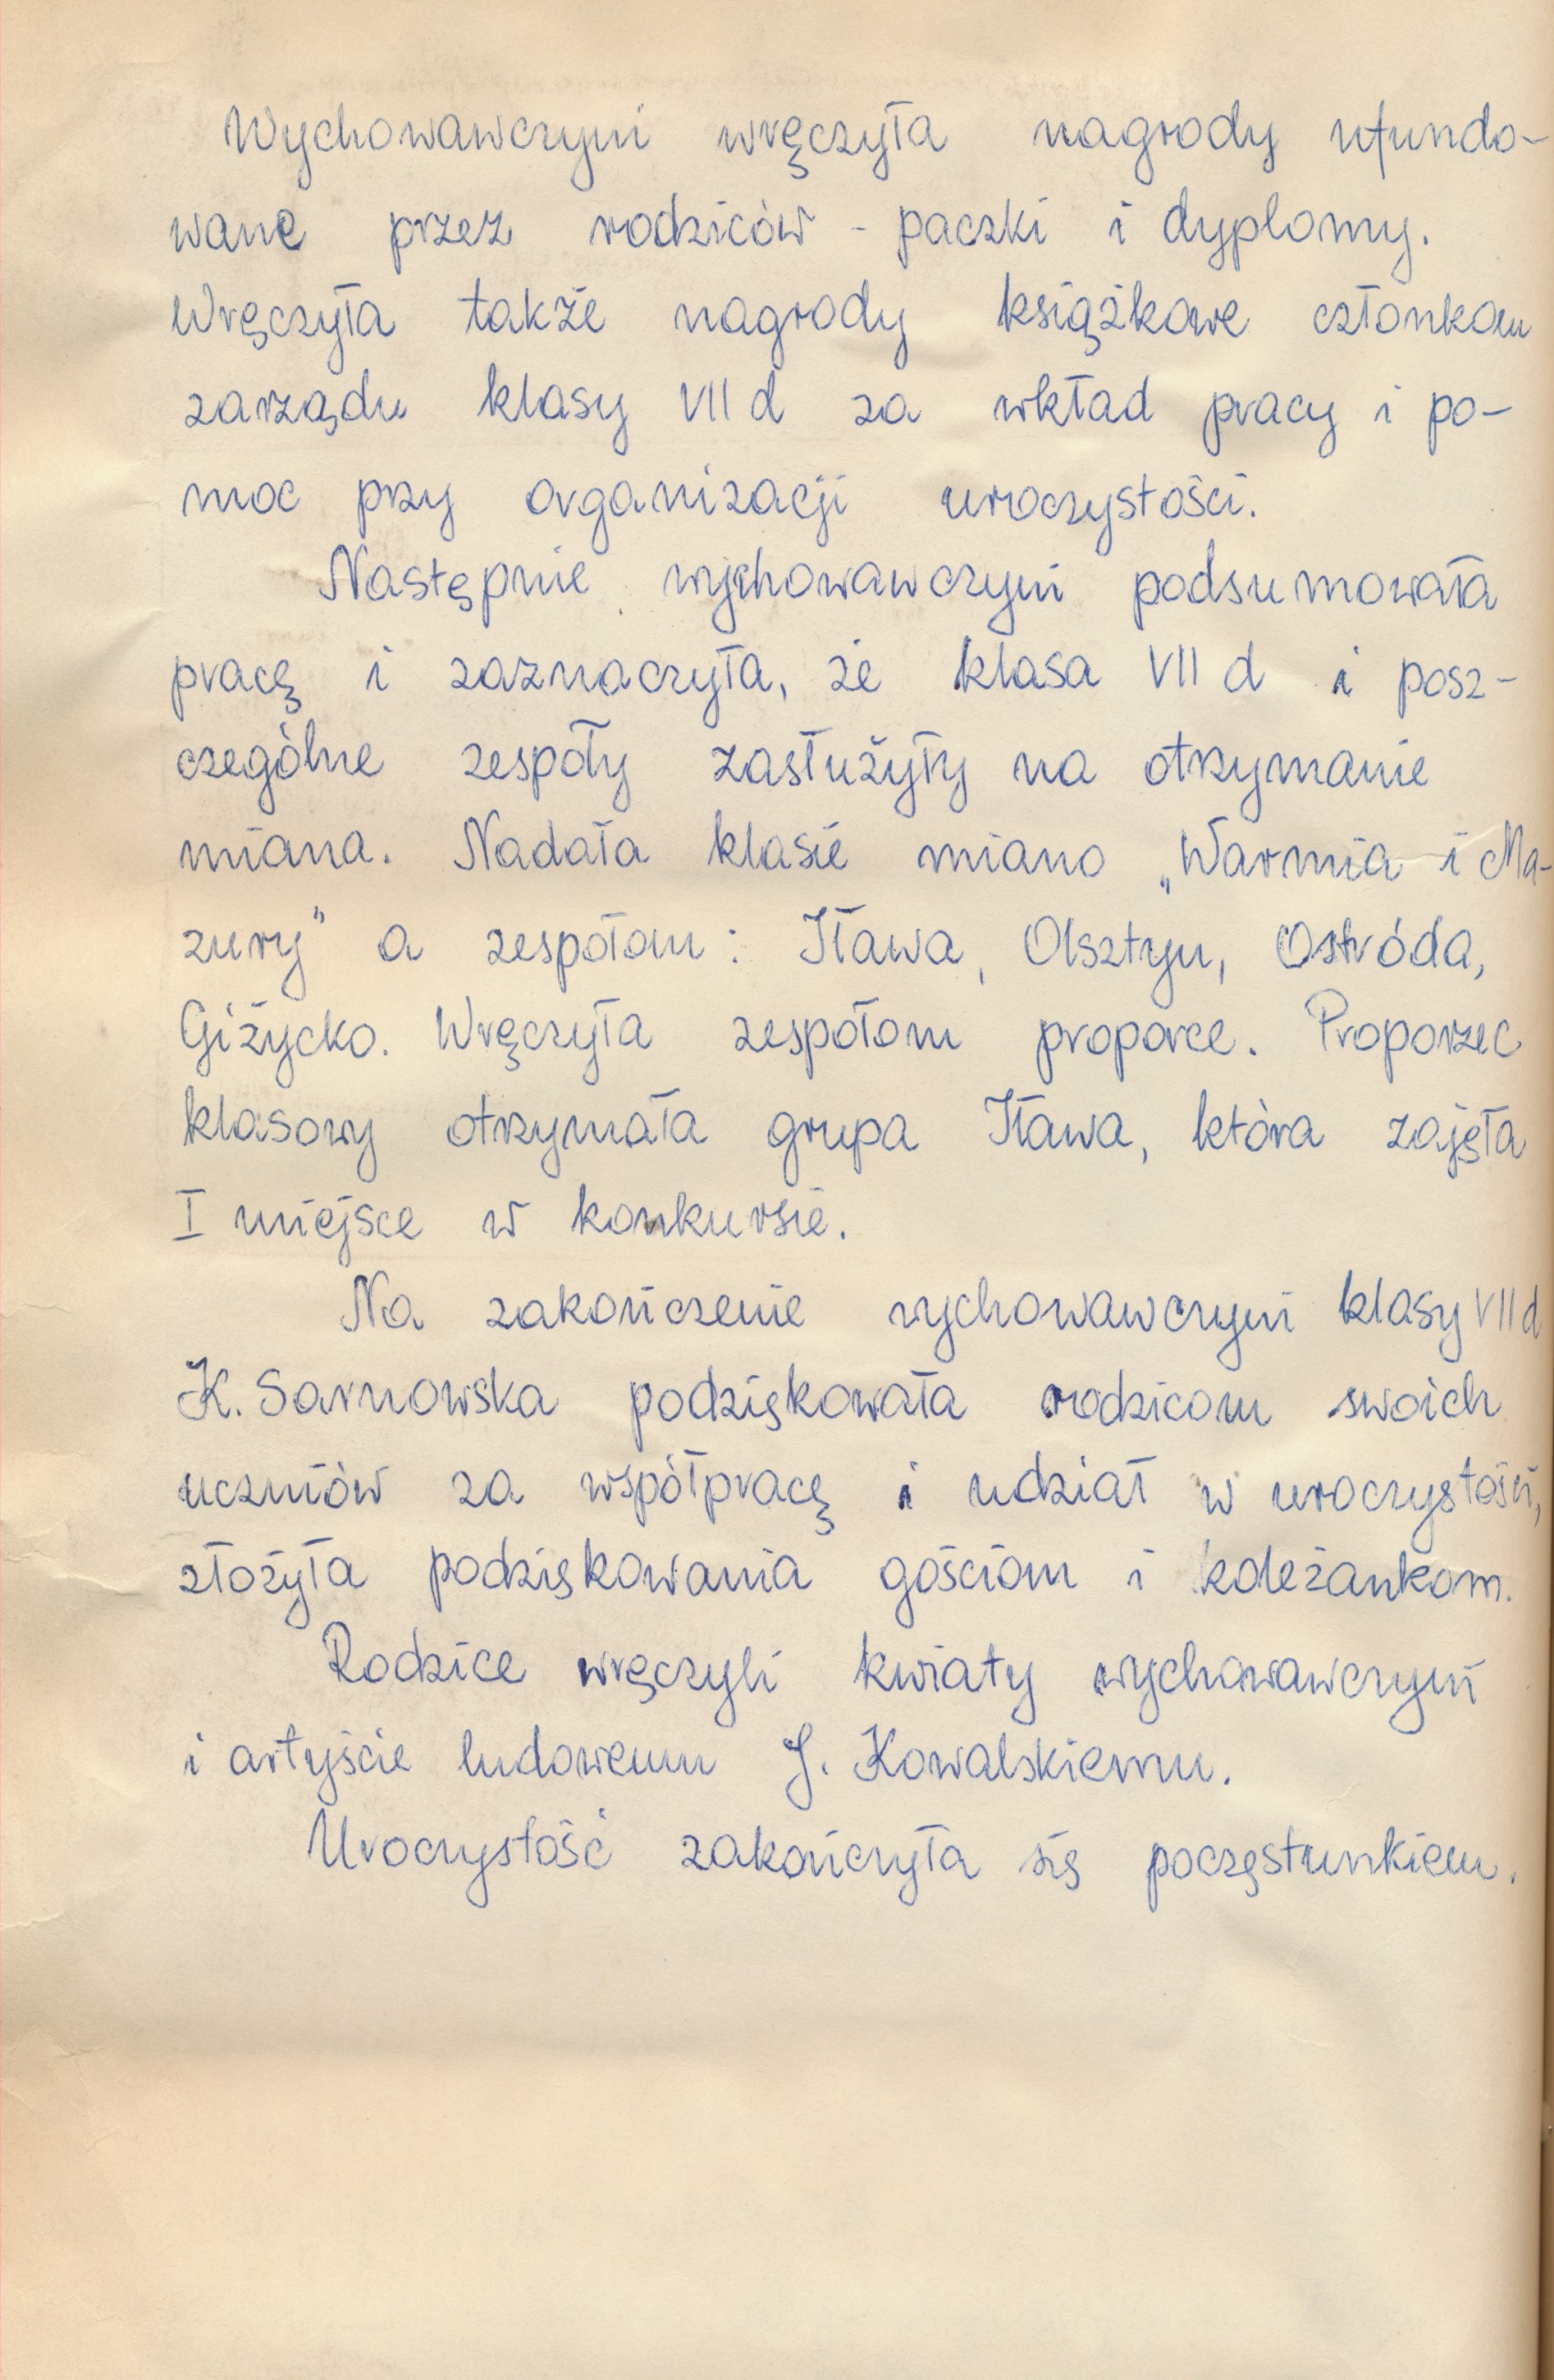 Wychowawczyni wręczyła nagrody ufundo-
wane przez rodziców - paczki i dyplomy.
Wręczyła także nagrody książkowe członkom
zarządu klasy VII d za wkład pracy i po-
moc przy organizacji uroczystości.
Następnie wychowawczyni podsumowała
pracę i zaznaczyła, że klasa VII d i posz-
czególne zespoły zasłużyły na otrzymanie
miana. Nadała klasie miano „Warmia i Ma-
zury” a zespołom: Iława, Olsztyn, Ostróda,
Giżycko. Wręczyła zespołom proporce. Proporzec
klasowy otrzymała grupa Iława, która zajęła
I miejsce w konkursie.
Na zakończenie wychowawczyni klasy VII d
K. Sarnowska podziękowała rodzicom swoich
uczniów za współpracę i udział w uroczystości,
złożyła podziękowania gościom i koleżankom.
Rodzice wręczyli kwiaty wychowawczyni
i artyście ludowemu J. Kowalskiemu.
Uroczystość zakończyła się poczęstunkiem.